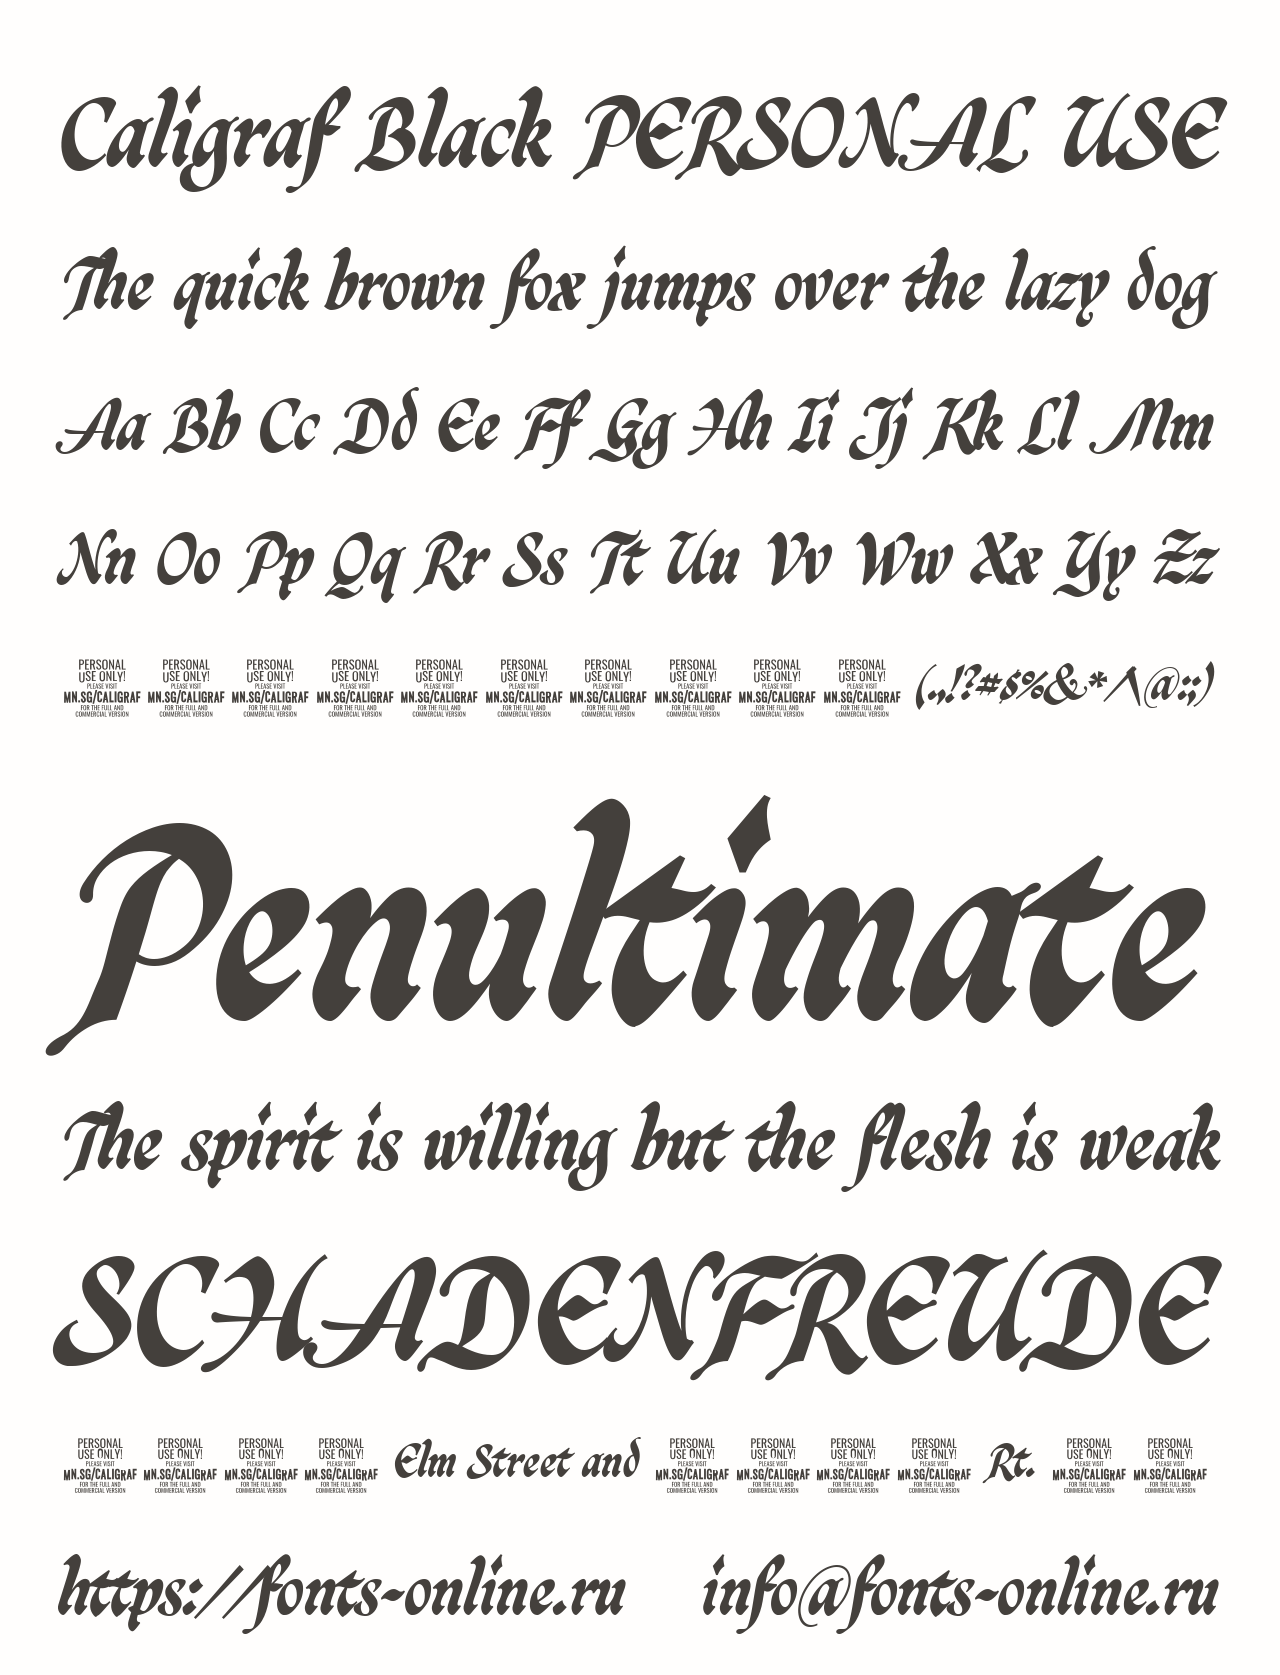 Caligraf Black PERSONAL USE
The quick brown fox jumps over the lazy dog
Aa Bb Cc Dd Ee Ff Gg Hh Ii Jj Kk Ll Mm
Nn Oo Pp Qq Rr Ss Tt Uu Vv Ww Xx Yy Zz
PERSONAL PERSONAL PERSONAL PERSONAL PERSONAL PERSONAL PERSONAL PERSONAL PERSONAL PERSONAL
USE ONLY! USE ONLY! USE ONLY! USE ONLY! USE ONLY! USE ONLY! USE ONLY! USE ONLY! USE ONLY! USE ONLY!
PLEASE VISIT PLEASE VISIT PLEASE VISIT PLEASE VISIT PLEASE VISIT PLEASE VISIT PLEASE VISIT PLEASE VISIT PLEASE VISIT PLEASE VISIT
MN.SG/CALIGRAF MN.SG/CALIGRAF MN.SG/CALIGRAF MN.SG/CALIGRAF MN.SG/CALIGRAF MN.SG/CALIGRAF MN.SG/CALIGRAF MN.SG/CALIGRAF MN.SG/CALIGRAF MN.SG/CALIGRAF (.,!?#$%&*^@:;)
FOR THE FULL AND FOR THE FULL AND FOR THE FULL AND FOR THE FULL AND FOR THE FULL AND FOR THE FULL AND FOR THE FULL AND FOR THE FULL AND FOR THE FULL AND FOR THE FULL AND
COMMERCIAL VERSION COMMERCIAL VERSION COMMERCIAL VERSION COMMERCIAL VERSION COMMERCIAL VERSION COMMERCIAL VERSION COMMERCIAL VERSION COMMERCIAL VERSION COMMERCIAL VERSION COMMERCIAL VERSION
Penultimate
The spirit is willing but the flesh is weak
SCHADENFREUDE
PERSONAL PERSONAL PERSONAL PERSONAL PERSONAL PERSONAL PERSONAL PERSONAL PERSONAL PERSONAL
USE ONLY! USE ONLY! USE ONLY! USE ONLY! USE ONLY! USE ONLY! USE ONLY! USE ONLY! USE ONLY! USE ONLY!
PLEASE VISIT PLEASE VISIT PLEASE VISIT PLEASE VISIT PLEASE VISIT PLEASE VISIT PLEASE VISIT PLEASE VISIT PLEASE VISIT PLEASE VISIT
MN.SG/CALIGRAF MN.SG/CALIGRAF MN.SG/CALIGRAF MN.SG/CALIGRAF Elm Street and MN.SG/CALIGRAF MN.SG/CALIGRAF MN.SG/CALIGRAF MN.SG/CALIGRAF Rt. MN.SG/CALIGRAF MN.SG/CALIGRAF
FOR THE FULL AND FOR THE FULL AND FOR THE FULL AND FOR THE FULL AND FOR THE FULL AND FOR THE FULL AND FOR THE FULL AND FOR THE FULL AND FOR THE FULL AND FOR THE FULL AND
COMMERCIAL VERSION COMMERCIAL VERSION COMMERCIAL VERSION COMMERCIAL VERSION COMMERCIAL VERSION COMMERCIAL VERSION COMMERCIAL VERSION COMMERCIAL VERSION COMMERCIAL VERSION COMMERCIAL VERSION
https://fonts-online.ru info@fonts-online.ru